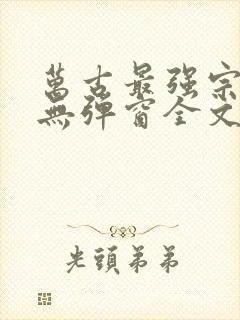 萬古最强宗
無彈窗全文
光頭弟弟